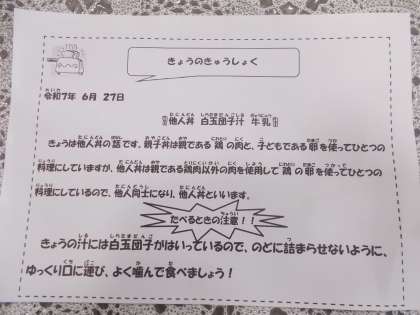 きょうのきゅうしょく
令和7年 6月 27日
◎他人丼 白玉団子汁 牛乳◎
きょうは他人丼の話です。親子丼は親である 鶏の肉と、子どもである 卵 を使ってひとつの
料理にしていますが、他人丼は親である鶏肉以外の肉を使用して 鶏の 卵 を使ってひとつの
料理にしているので、他人同士になり、他人丼といいます。
たべるときの注意！！
きょうの汁には白玉団子がはいっているので、のどに詰まらせないように、
ゆっくり口に運び、よく噛んで食べましょう！